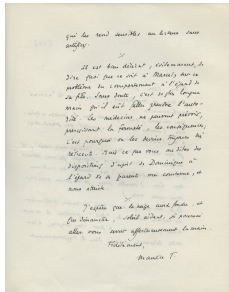 qui les rend sensibles au lecteur sans
artifice.
Il est bien délicat, évidemment, de
dire quoi que ce soit à Marcel, sur ce
problème du comportement à l'égard de
sa fille. Sans doute, c'est de plus longue
main qu'il eût fallu prendre l'
. Les médecins ne peuvent prévoir,
, les conséquences,
c'est pourquoi on les devine toujours
réticents. Mais ce que vous me dites des
dispositions d'esprit de Dominique à
l'égard de ses parents me consterne, et
nous attriste.
J'espère que la neige aura fondu et
que dimanche, soleil aidant, je pourrai
aller vous serrer affectueusement la main.
Fidèlement,
Maurice T.